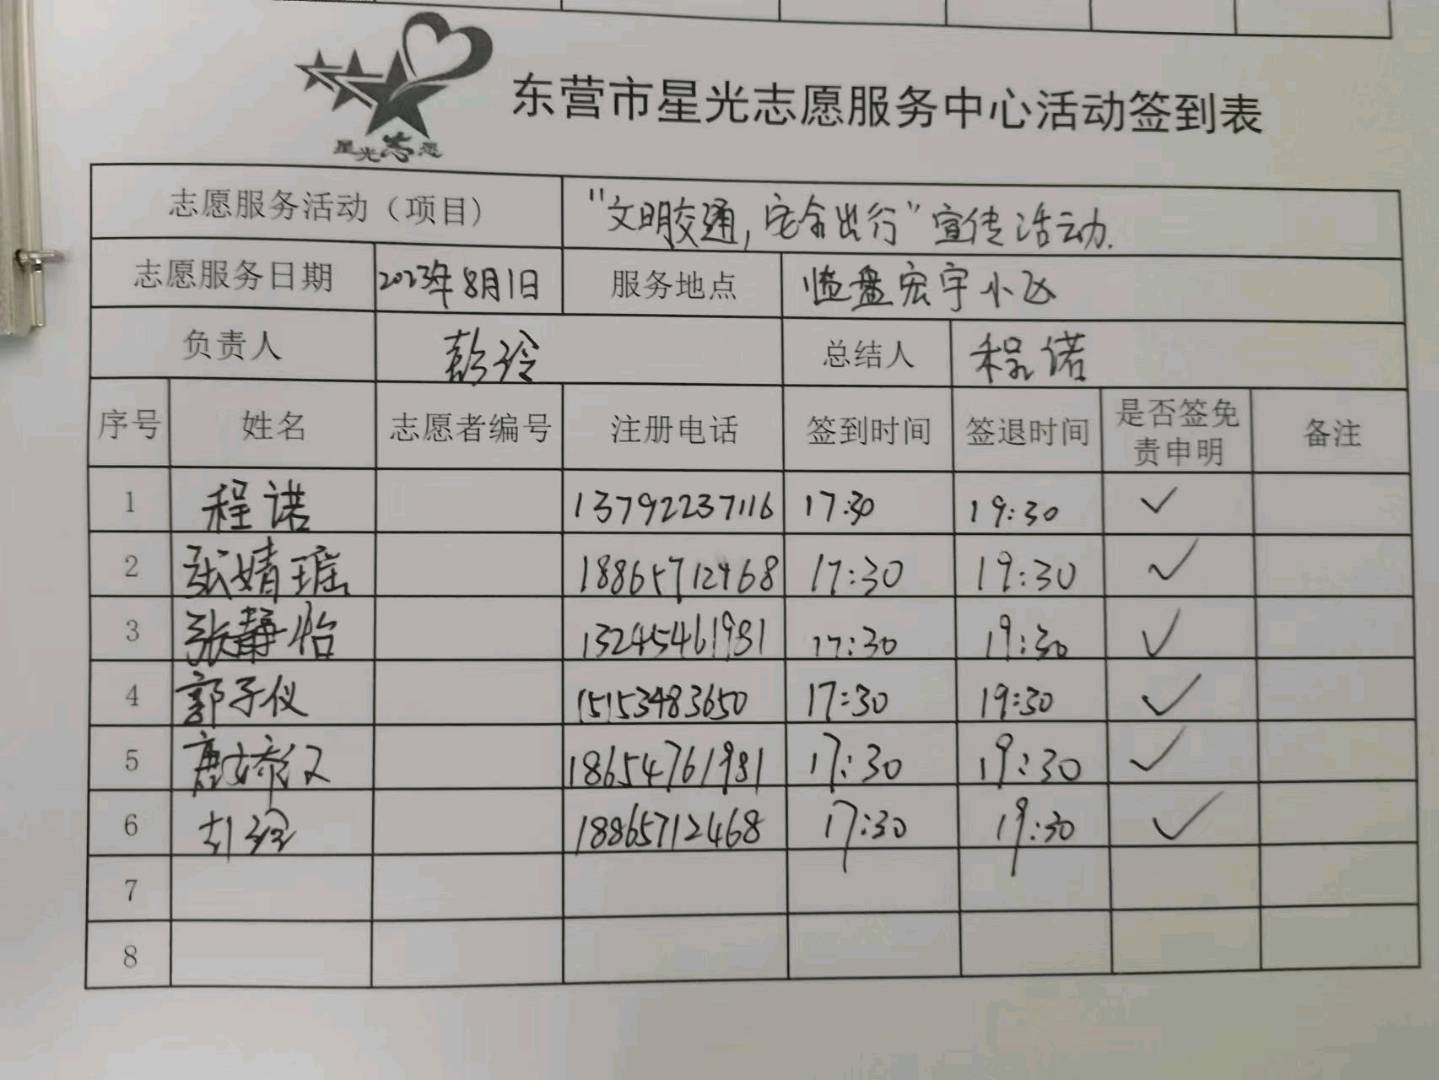 星光志愿
东营市星光志愿服务中心活动签到表
志愿服务活动（项目） “文明交通,安全出行”宣传活动.
志愿服务日期 2023年8月1日 服务地点 临盘宏宇小区
负责人 彭玲 总结人 程诺
序号 姓名 志愿者编号 注册电话 签到时间 签退时间 是否签免责申明 备注
1 程诺 13792237116 17:30 19:30 ✓
2 张婧瑶 18865712468 17:30 19:30 ✓
3 张静怡 13245461981 17:30 19:30 ✓
4 郭子仪 15153483650 17:30 19:30 ✓
5 唐娇汉 18654761981 17:30 19:30 ✓
6 18865712468 17:30 19:30 ✓
7
8